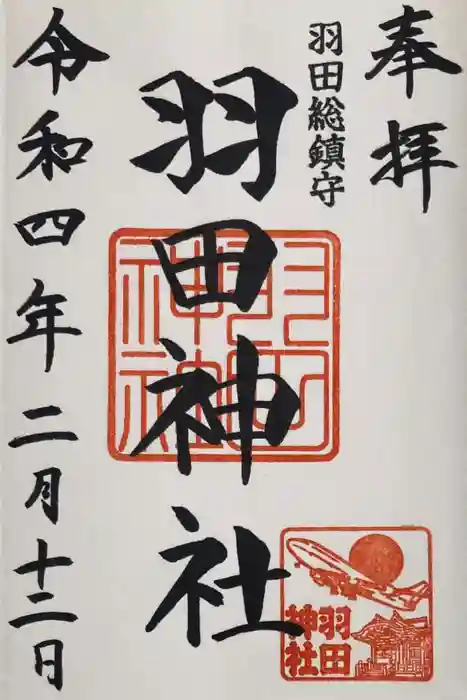 奉拝
羽田総鎮守
羽田神社
羽田神社
羽田
神社
令和四年二月十二日